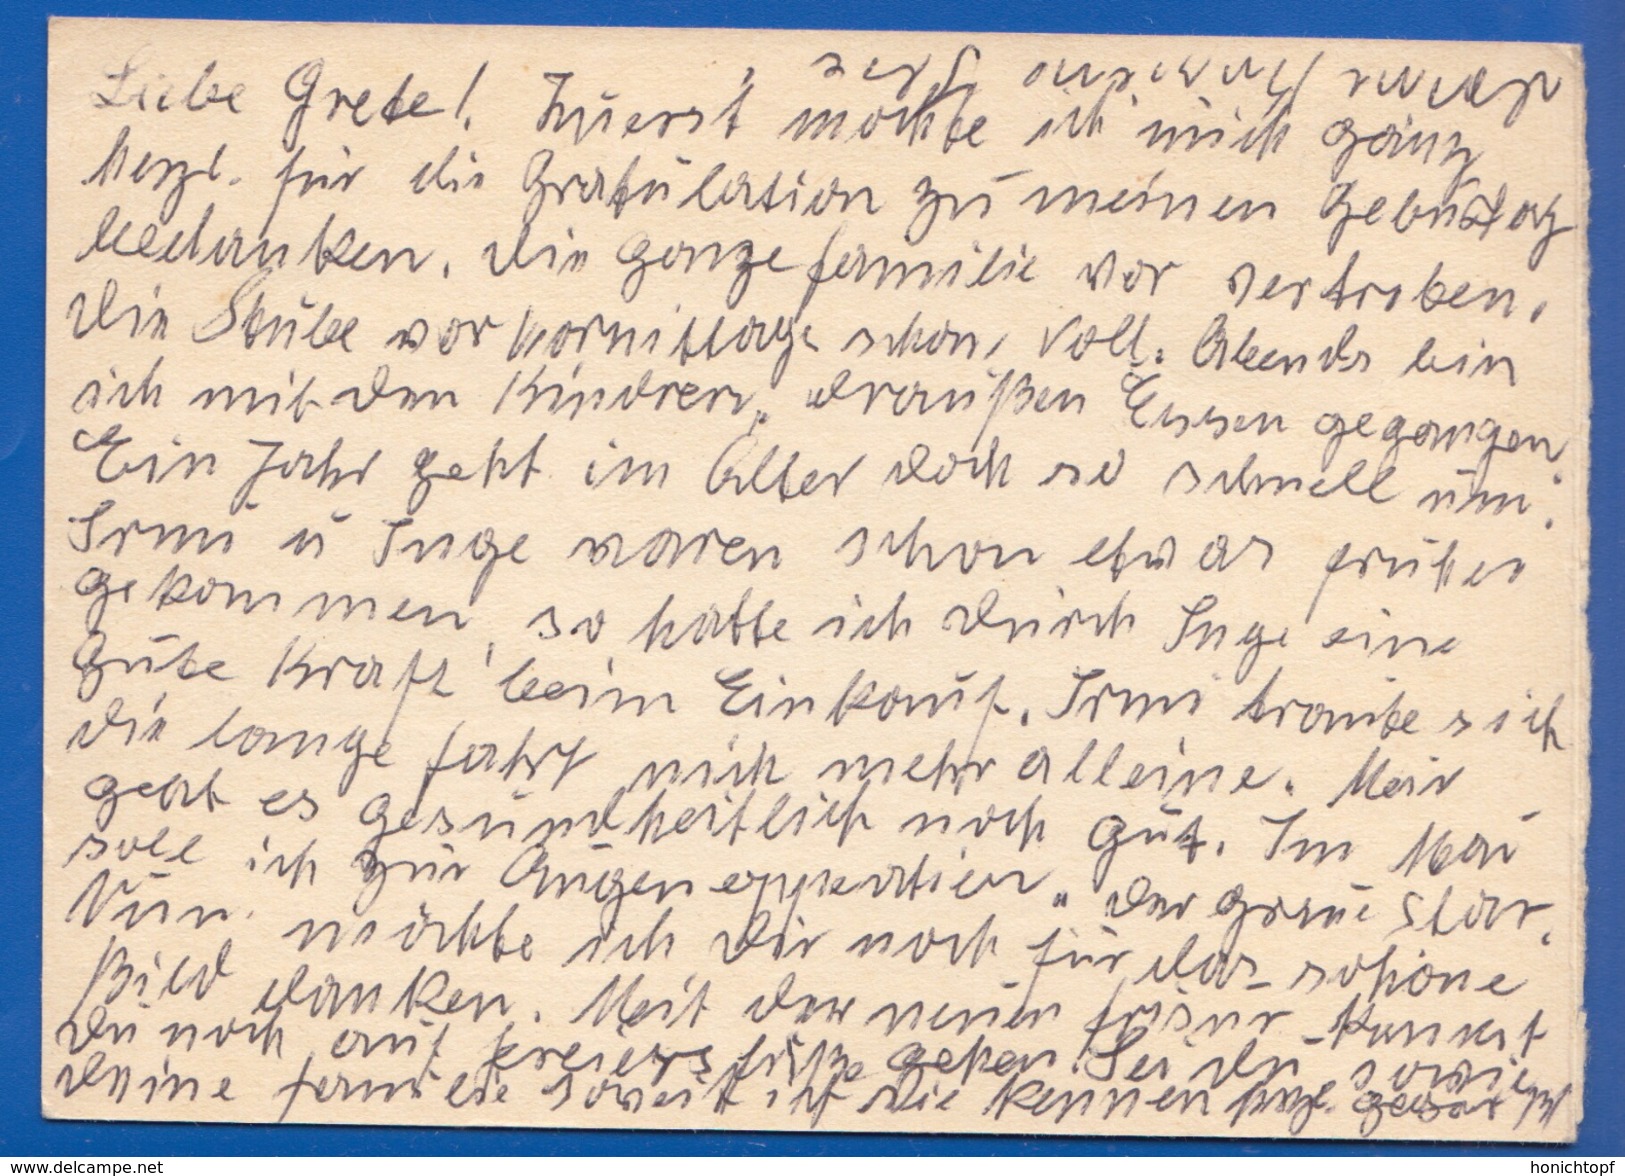 Liebe Grete! Zuerst möchte ich mich ganz
herzl. für die Gratulation zu meinen Gebustag
bedanken. Die ganze Familie war vertreben,
die Stube war Vormittags schon, voll. Abends bin
ich mit den Kindren, draußen Essen gegangen.
Ein Jahr geht im Alter doch so schnell um.
Irmi u Inge waren schon etwas früher
gekommen, so hatte ich durch Inge eine
gute Kraft beim Einkauf. Irmi traute sich
die lange Fahrt nich mehr alleine. Mir
geht es gesundheitlich noch gut. Im Mai
soll ich zur Augenopperation, der graue Star.
Nun möchte ich Dir noch für das schöne
Bild danken. Mit der neuen Frisur kannst
Du noch auf Freiers füße gehen. Sei du sowie
Deine Familie soweit ich die kennen herzl.